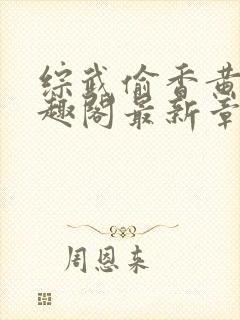 综武偷香黄
趣阁最新章
周恩来